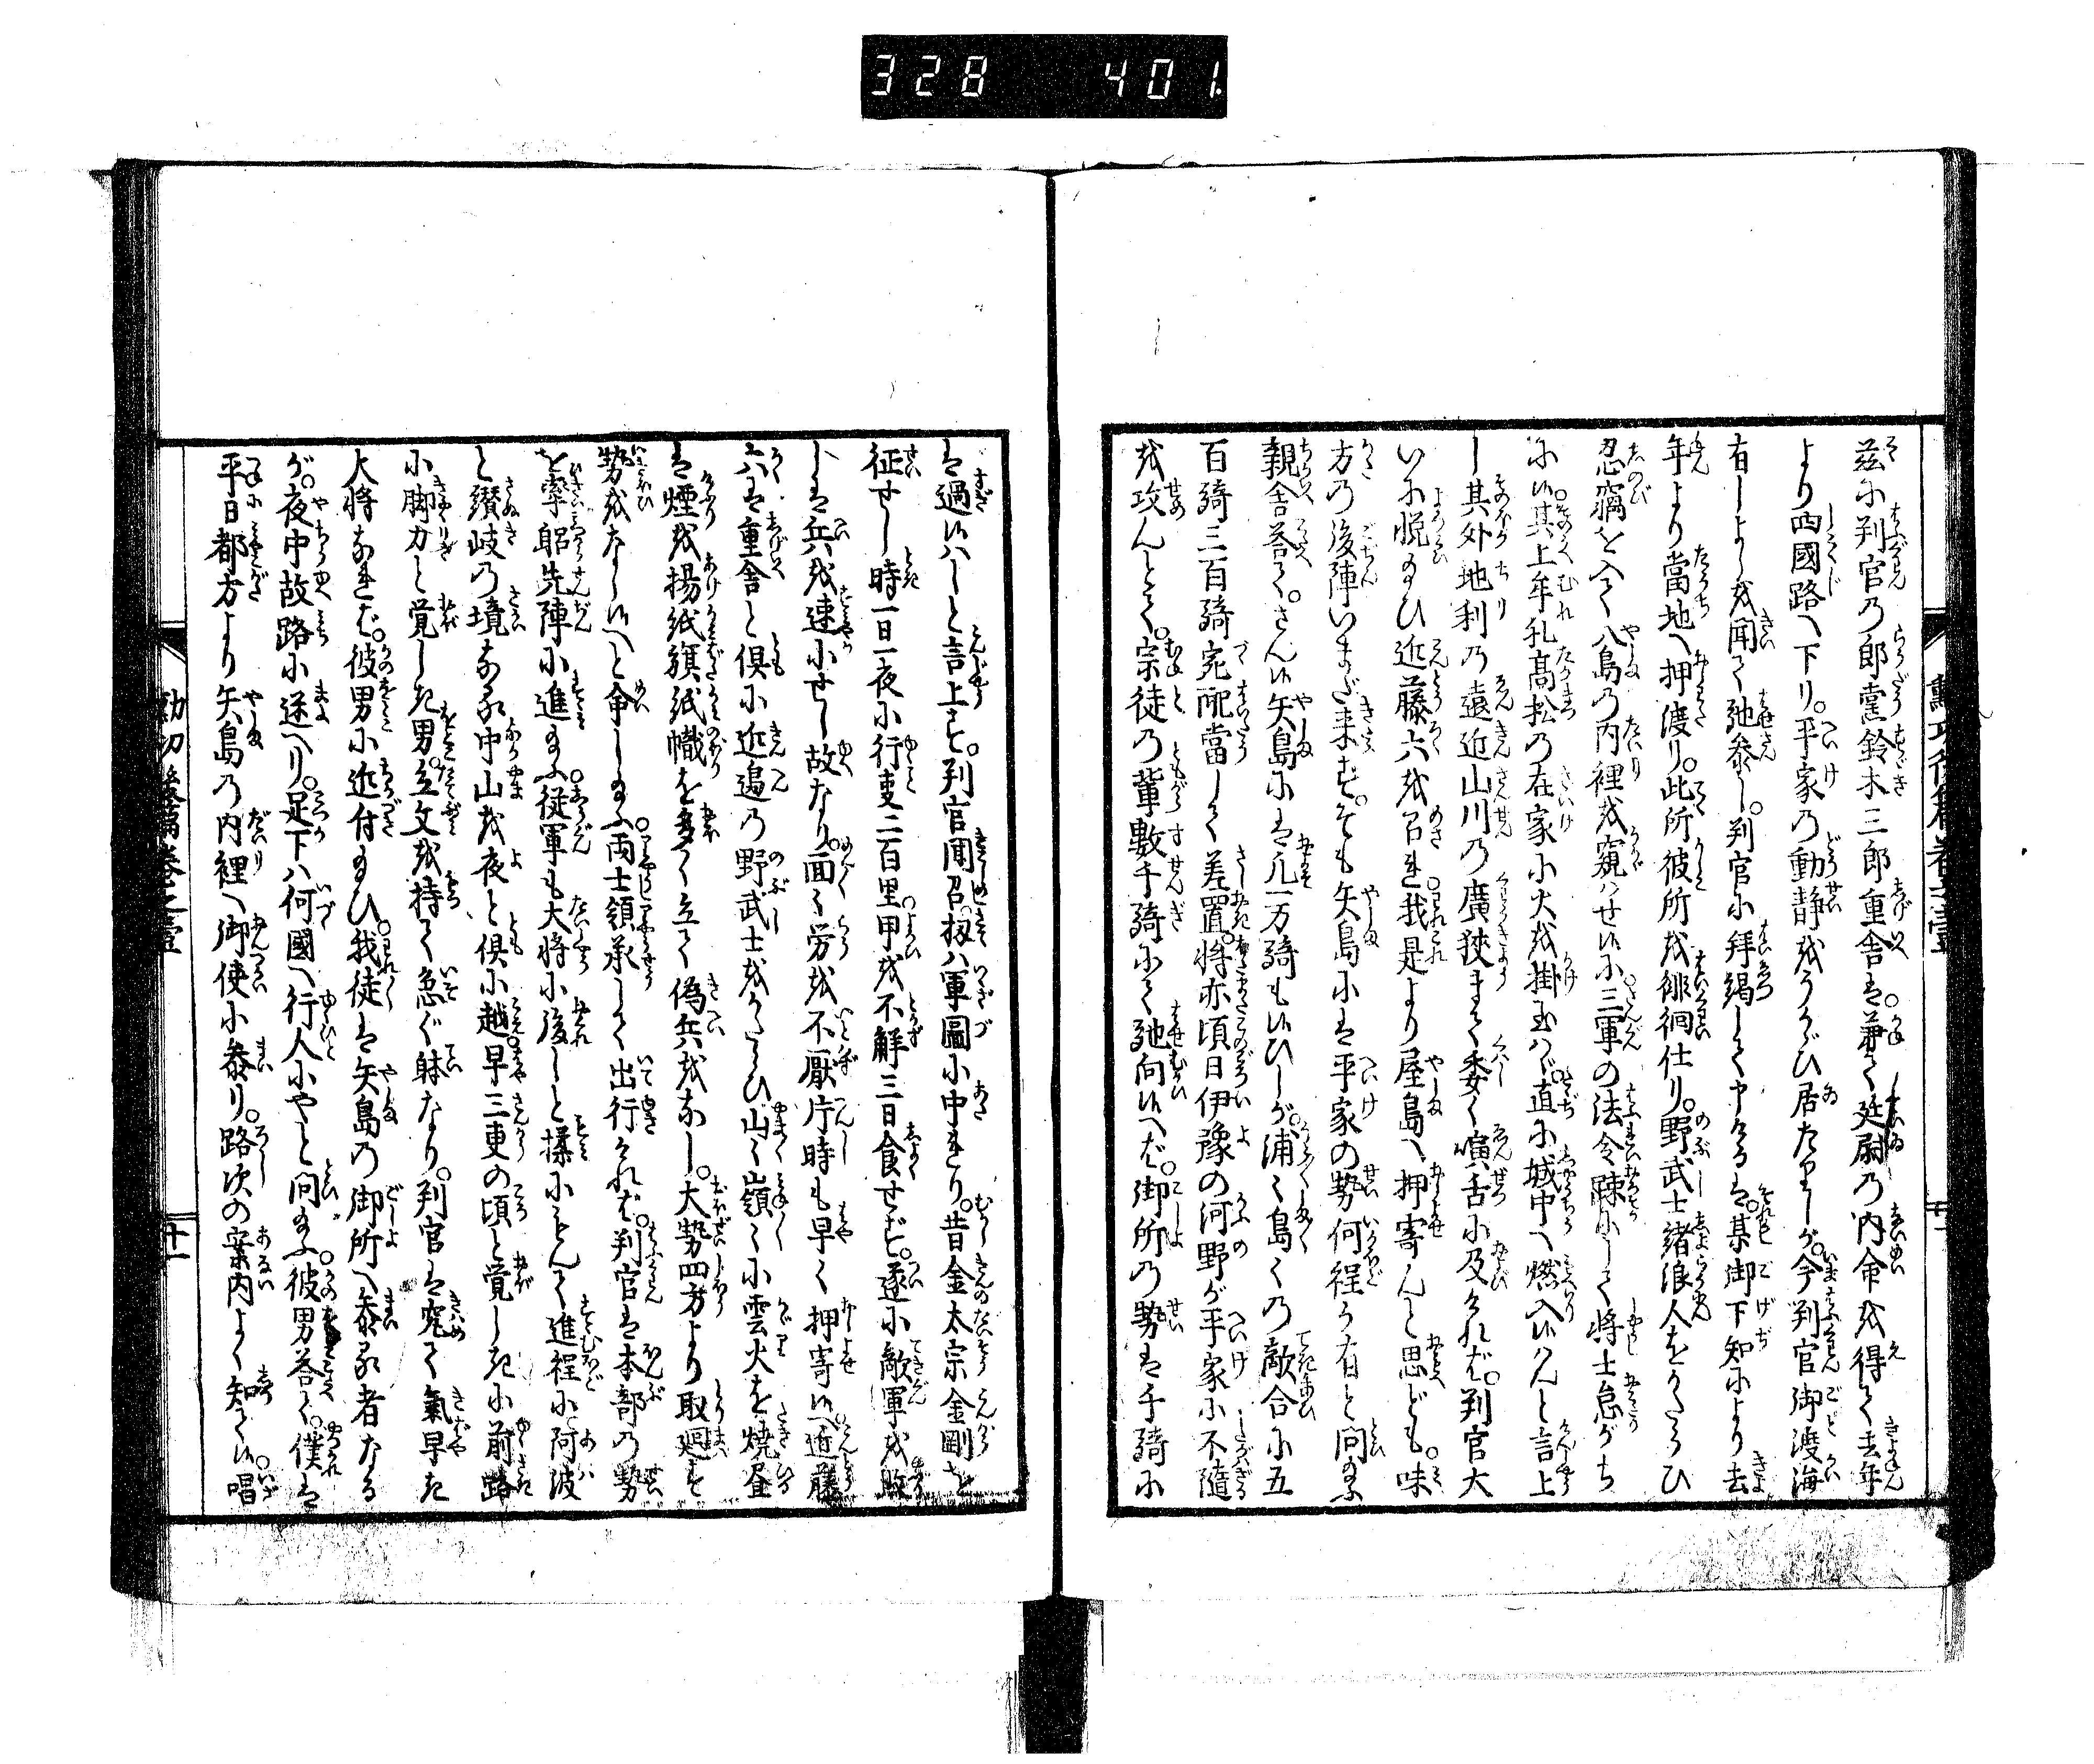 328 401.
茲に判官の郎黨鈴木三郎重舎は。兼て廷尉の内命を得て去年
より四國路へ下り。平家の動静をうかゞひ居たりしが。今判官御渡海
有しよしを聞て馳参し。判官に拜謁して申けるは。某御下知により去
年より當地へ押渡り。此所彼所を徘徊仕り。野武士緒浪人をかたらひ
忍竊を入て八島の内裡を窺はせ候に。三軍の法令疎にして将士怠がち
に候。其上牟礼高松の在家に火を掛玉はゞ直に城中へ燃入候はんと言上
し其外地利の遠近山川の廣狭まで委く嚝舌に及けれは。判官大
いに悦玉ひ近藤六を召れ。我是より屋島へ押寄んと思ども。味
方の後陣いまだ来ず。そも矢島には平家の勢何程か有と問玉ふ
親舎答て。さん候矢島には凡一万騎も候ひしが。浦〻島〻の敵合に五
百騎三百騎宛配當して差置。将亦頃日伊豫の河野が平家に不隨
を攻んとて。宗徒の輩數千騎にて馳向候へば。御所の勢は千騎に
は過候はしと言上す。判官聞召扨は軍圖に中れり。昔金太宗金剛を
征せし時一日一夜に行叓二百里甲を不解三日食せず。遂に敵軍を敗
しは兵を速にせし故なり。面〻労を不厭片時も早く押寄候へ。近藤
六は重舎と倶に近邉の野武士をかたらひ山〻嶺〻に雲火を燒昼
は煙を揚紙籏紙幟を多く立て偽兵をなし。大勢四方より取廻す
勢をなし候へと命し玉ふ。両士領承して出行けれは。判官は本部の勢
を率躬先陣に進玉ふ。従軍も大将に後しと揉にもんて進程に阿波
と讃岐の境なる中山を夜と倶に越。早三更の頃と覚しきに前路
に脚力と覚しき男。立文を持て急ぐ躰なり。判官は究て氣早き
大将なれば。彼男に近付玉ひ。我徒は矢島の御所へ参る者なる
が。夜中故路に迷へり。足下は何國へ行人にやと問玉ふ。彼男答て。僕は
平日都方より矢島の内裡へ御使に参り。路次の案内よく知て候。唱
勲功後篇巻之壹
十一